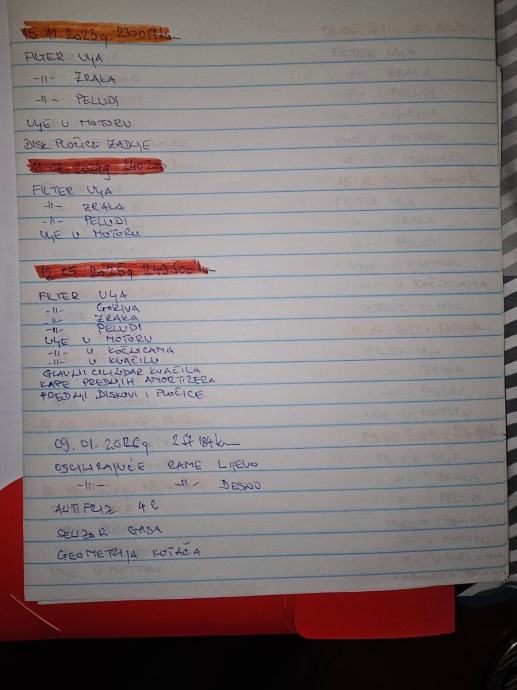 15.11.2023g 230017km
FILTER ULJA
-II- ZRAKA
-II- PELUDI
ULJE U MOTORU
DISK PLOČICE ZADNJE
2024g
FILTER ULJA
-II- ZRAKA
-II- PELUDI
ULJE U MOTORU
12.05.2025g km
FILTER ULJA
-II- GORIVA
-II- ZRAKA
-II- PELUDI
ULJE U MOTORU
-II- U KOČNICAMA
-II- U KVAČILU
GLAVNI CILINDAR KVAČILA
KAPE PREDNJIH AMORTIZERA
PREDNJI DISKOVI I PLOČICE
09.01.2026g. 257184km
OSCILIRAJUĆE RAME LIJEVO
-II- -II- DESNO
ANTIFRIZ 4L
SENZOR GASA
GEOMETRIJA KOTAČA